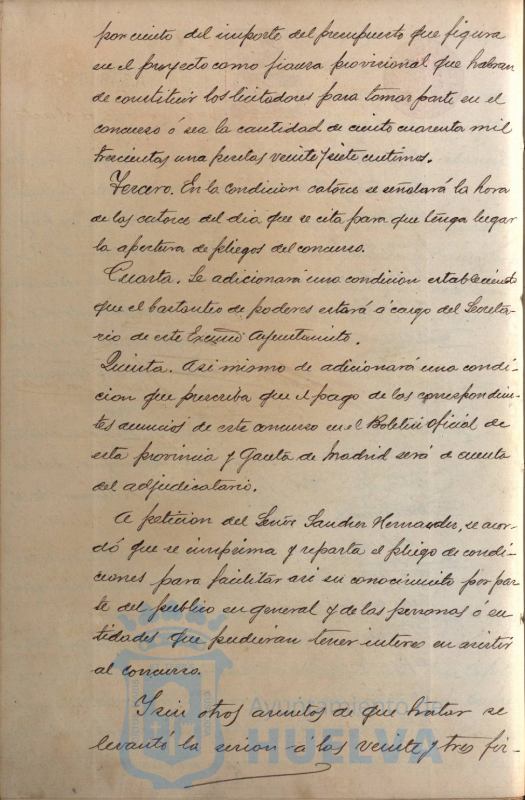 por ciento del importe del presupuesto que figura
en el proyecto como fianza provisional que habran
de constituir los licitadores para tomar parte en el
concurso ó sea la cantidad de ciento cuarenta mil
trescientas una pesetas veinte y siete centimos.
Tercero. En la condicion catorce se señalará la hora
de las catorce del dia que se cita para que tenga lugar
la apertura de pliegos del concurso.
Cuarta. Se adicionará una condicion estableciendo
que el bastanteo de poderes estará á cargo del Secreta-
rio de este Excmo Ayuntamiento.
Quinta. Asi mismo de adicionará una condi-
cion que prescriba que el pago de los correspondien-
tes anuncios de este concurso en el Boletin oficial de
esta provincia y Gaceta de Madrid será de cuenta
del adjudicatario.
A peticion del Señor Sanchez Hernandez, se acor-
dó que se imprima y reparta el pliego de condi-
ciones para facilitar asi su conocimiento por par-
te del publico en general y de las personas ó en-
tidades que pudieran tener interes en asistir
al concurso.
Y sin otros asuntos de que tratar se
levantó la sesion á las veinte y tres fir-
Ayuntamiento de
HUELVA